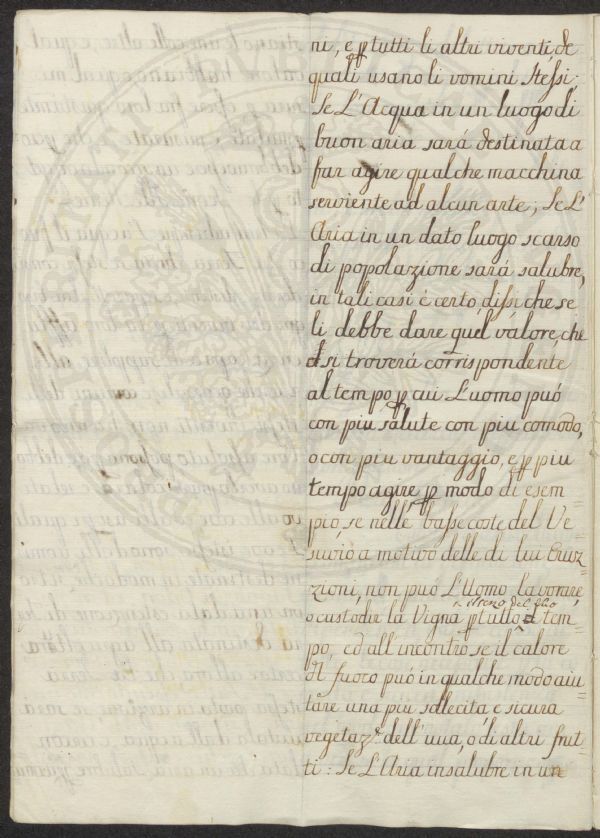 ni, e p tutti li altri viventi de
quali usano li vomini stessi;
Se L'Acqua in un luogo di
buon aria sará destinata a
far agire qualche macchina
serviente ad alcun arte; Se L'
Aria in un dato luogo scarso
di popolazione sará salubre,
in tali casi é certo, dissi che se
li debbe dare quel valore, che
si troverá corrispondente
al tempo p cui L'uomo puó
con piu salute con piu comodo,
o con piu vantaggio, e p piu
tempo agire p modo di esem
pio, se nelle basse coste del Ve
suvio a motivo delle di lui Eruz
zioni, non puó L'Uomo lavorare,
o custodir la Vigna p tutto il tem
po, ed all'incontro se il calore
del fuoco puó in qualche modo aiu
tare una piu sollecita e sicura
vegetaz.e dell'uua, o di altri frut
ti: Se L'Aria insalubre in un